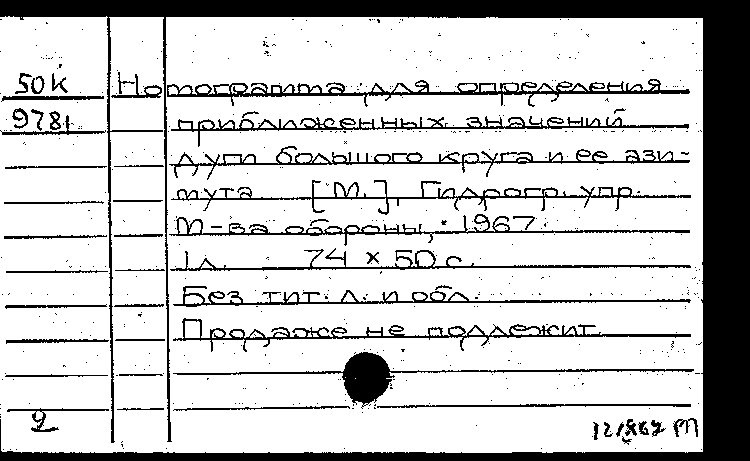 50К Номограмма для определения
9781 приближенных значений
дуги большого круга и ее ази-
мута [М.], Гидрогр. упр.
М-ва обороны, 1967.
1 л. 74 × 50 с.
Без тит. л. и обл.
Продаже не подлежит
9